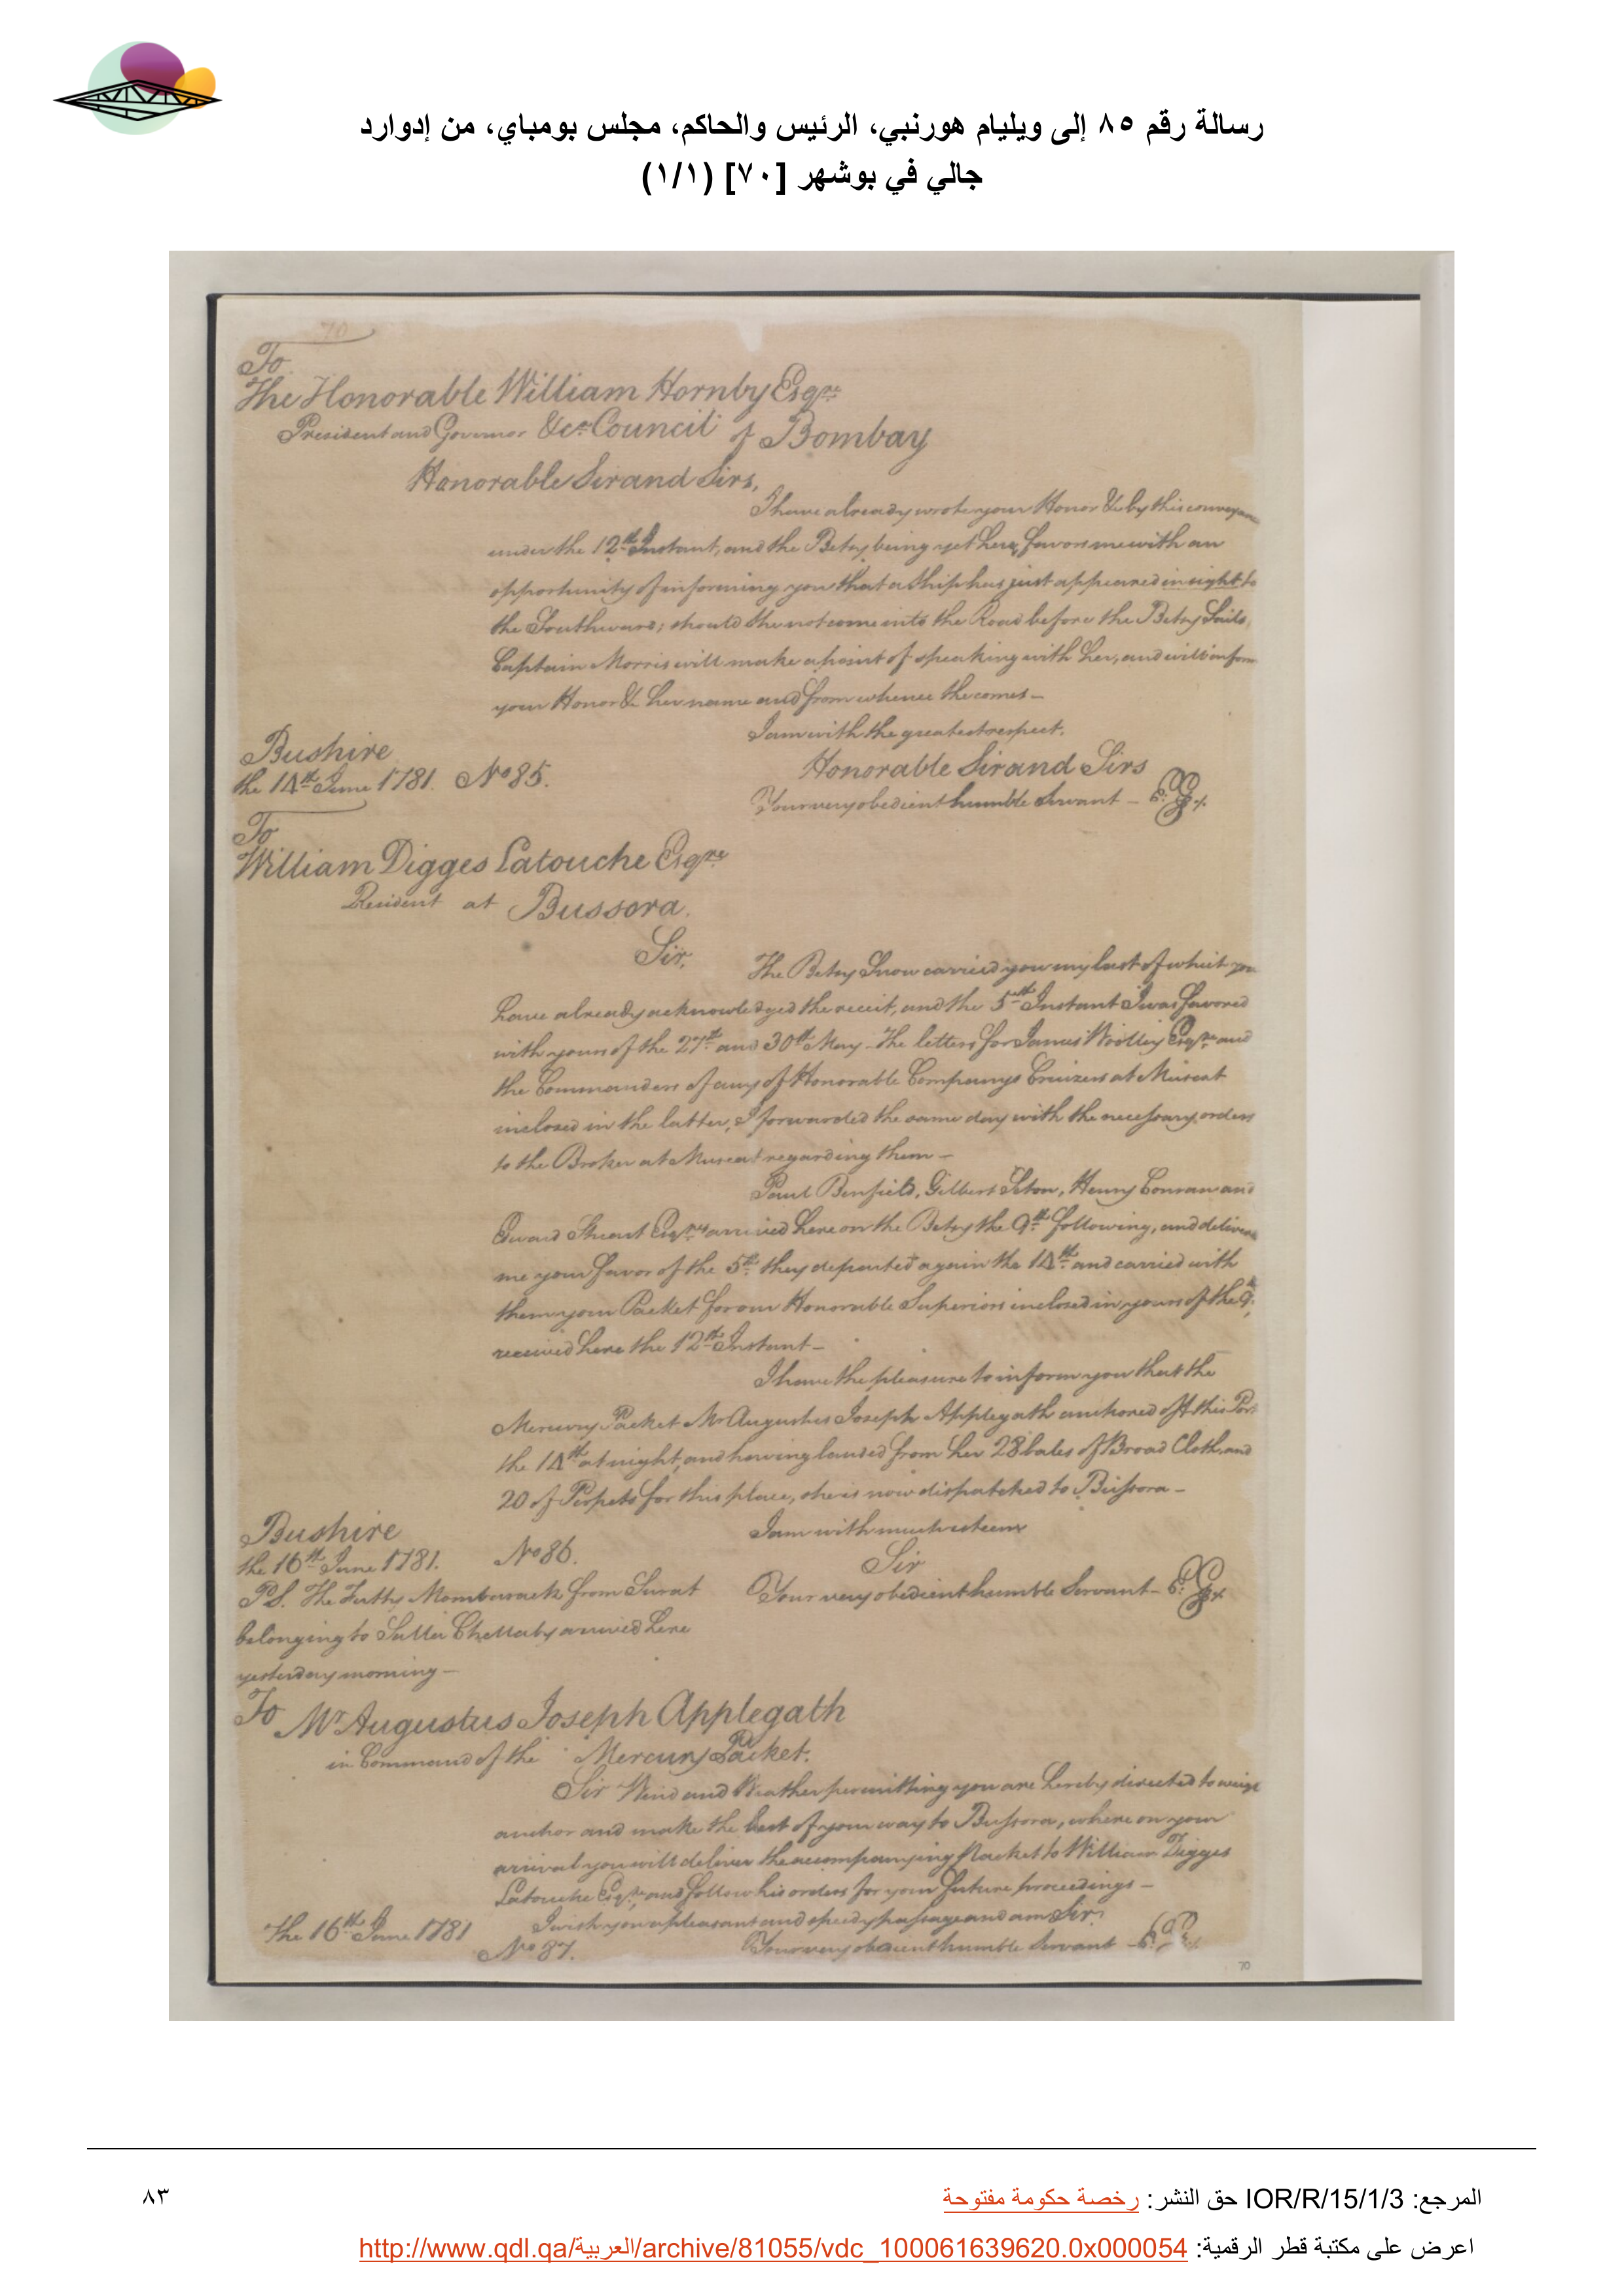 رسالة رقم ٨٥ إلى ويليام هورنبي، الرئيس والحاكم، مجلس بومباي، من إدوارد
جالي في بوشهر [٧٠] (١/١)
70
To
The Honorable William Hornby Esqre
President and Governor &ca Council of Bombay
Honorable Sir and Sirs,
I have already wrote your Honor &c by this conveyan
under the 12th Instant, and the Betsy being yet here, favors me with an
opportunity of informing you that a Ship has just appeared in sight to
the Southward; should she not come into the Road before the Betsy Sails,
Captain Morris will make a point of speaking with her, and will inform
your Honor &c her name and from whence she comes —
I am with the greatest respect,
Honorable Sir and Sirs
Bushire
the 14th June 1781. No 85.
Your very obedient humble Servant — E: G
To
William Digges Latouche Esqre
Resident at Bussora.
Sir,
The Betsy Snow carried you my last of which you
have already acknowledged the receit, and the 5th Instant I was favored
with yours of the 27th and 30th May. The letters for James Woolley Esqre and
the Commanders of any of Honorable Companys Cruizers at Muscat
inclosed in the latter, I forwarded the same day with the necessary orders
to the Broker at Muscat regarding them —
Paul Benfield, Gilbert Seton, Henry Conran and
Edward Stuart Esqrs arrived here on the Betsy the 9th following, and deliver
me your favor of the 5th they departed again the 14th and carried with
them your Packet for our Honorable Superiors inclosed in yours of the 9th,
received here the 12th Instant —
I have the pleasure to inform you that the
Mercury Packet Mr Augustus Joseph Applegath anchored off this Port
the 14th at night, and having landed from her 28 bales of Broad Cloth, and
20 of Perpets for this place, she is now dispatched to Bussora —
I am with much esteem
Bushire
the 16th June 1781. No 86.
Sir
Your very obedient humble Servant — E: G
PS. The Futty Mombarack from Surat
belonging to Sallee Chellaby arrived here
yesterday morning —
To Mr Augustus Joseph Applegath
in Command of the Mercury Packet.
Sir Wind and Weather permitting you are hereby directed to weigh
anchor and make the best of your way to Bussora, where on your
arrival you will deliver the accompanying Packet to William Digges
Latouche Esqre, and follow his orders for your future proceedings —
I wish you a pleasant and speedy passage and am Sir,
The 16th June 1781
No 87.
Your very obedient humble Servant — E: G
70
المرجع: IOR/R/15/1/3 حق النشر: رخصة حكومة مفتوحة
٨٣
اعرض على مكتبة قطر الرقمية: http://www.qdl.qa/العربية/archive/81055/vdc_100061639620.0x000054